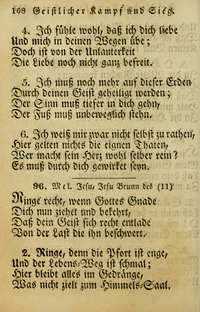 168 Geistlicher Kampf und Sieg.
4. Ich fühle wohl, daß ich dich liebe
Und mich in deinen Wegen übe;
Doch ist von der Unlauterkeit
Die Liebe noch nicht ganz befreit.
5. Ich muß noch mehr auf dieser Erden
Durch deinen Geist geheiligt werden;
Der Sinn muß tiefer in dich gehn,
Der Fuß muß unbeweglich stehn.
6. Ich weiß mir zwar nicht selbst zu rathen,
Hier gelten nichts die eignen Thaten,
Wer macht sein Herz wohl selber rein?
Es muß durch dich gewirket seyn.
96. Mel. Jesu, Jesu Brunn des (11)
Ringe recht, wenn Gottes Gnade
Dich nun ziehet und bekehrt,
Daß dein Geist sich recht entlade
Von der Last die ihn beschwert.
2. Ringe, denn die Pfort ist enge,
Und der Lebens-Weg ist schmal;
Hier bleibt alles im Gedränge,
Was nicht zielt zum Himmels-Saal.